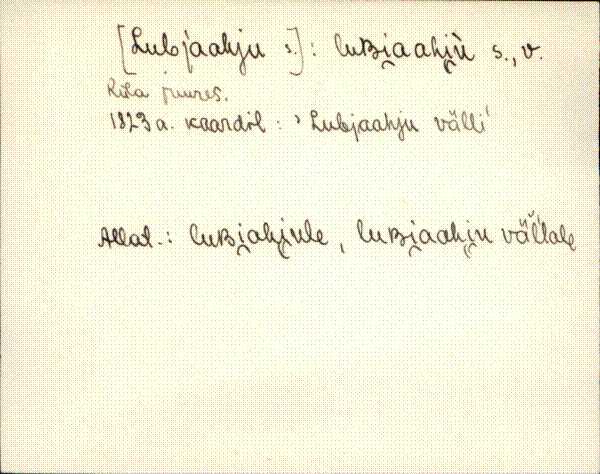 [Lubjaahju s.]: luʙi̯aahi̯ù s., v.
Küla juures.
1823 a. kaardil: 'Lubjaahju välli'
Allat.: luʙi̯ahi̯ule, luʙi̯aahi̯u väl̆'l'ale